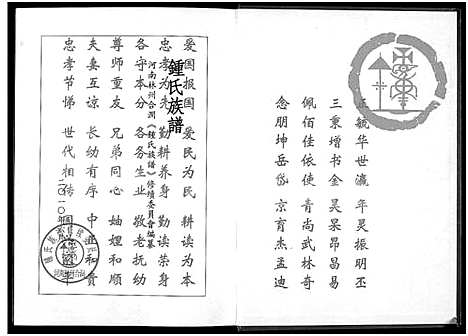 毓华世瀛 年昊振明丕
三秉增书金 昊杲昂昌易
佩佰佳依使 青尚武林奇
念朋坤岳岱 京育杰孟迪
爱国报国 爱民为民 耕读为本
忠孝为先 勤耕养身 勤读荣身
各守本分 各务生业 敬老抚幼
尊师重友 兄弟同心 妯娌和顺
夫妻互谅 长幼有序 中正和贵
忠孝节悌 世代相传
鍾氏族譜
河南林州合涧《鍾氏族谱》修續委员會
二〇一〇